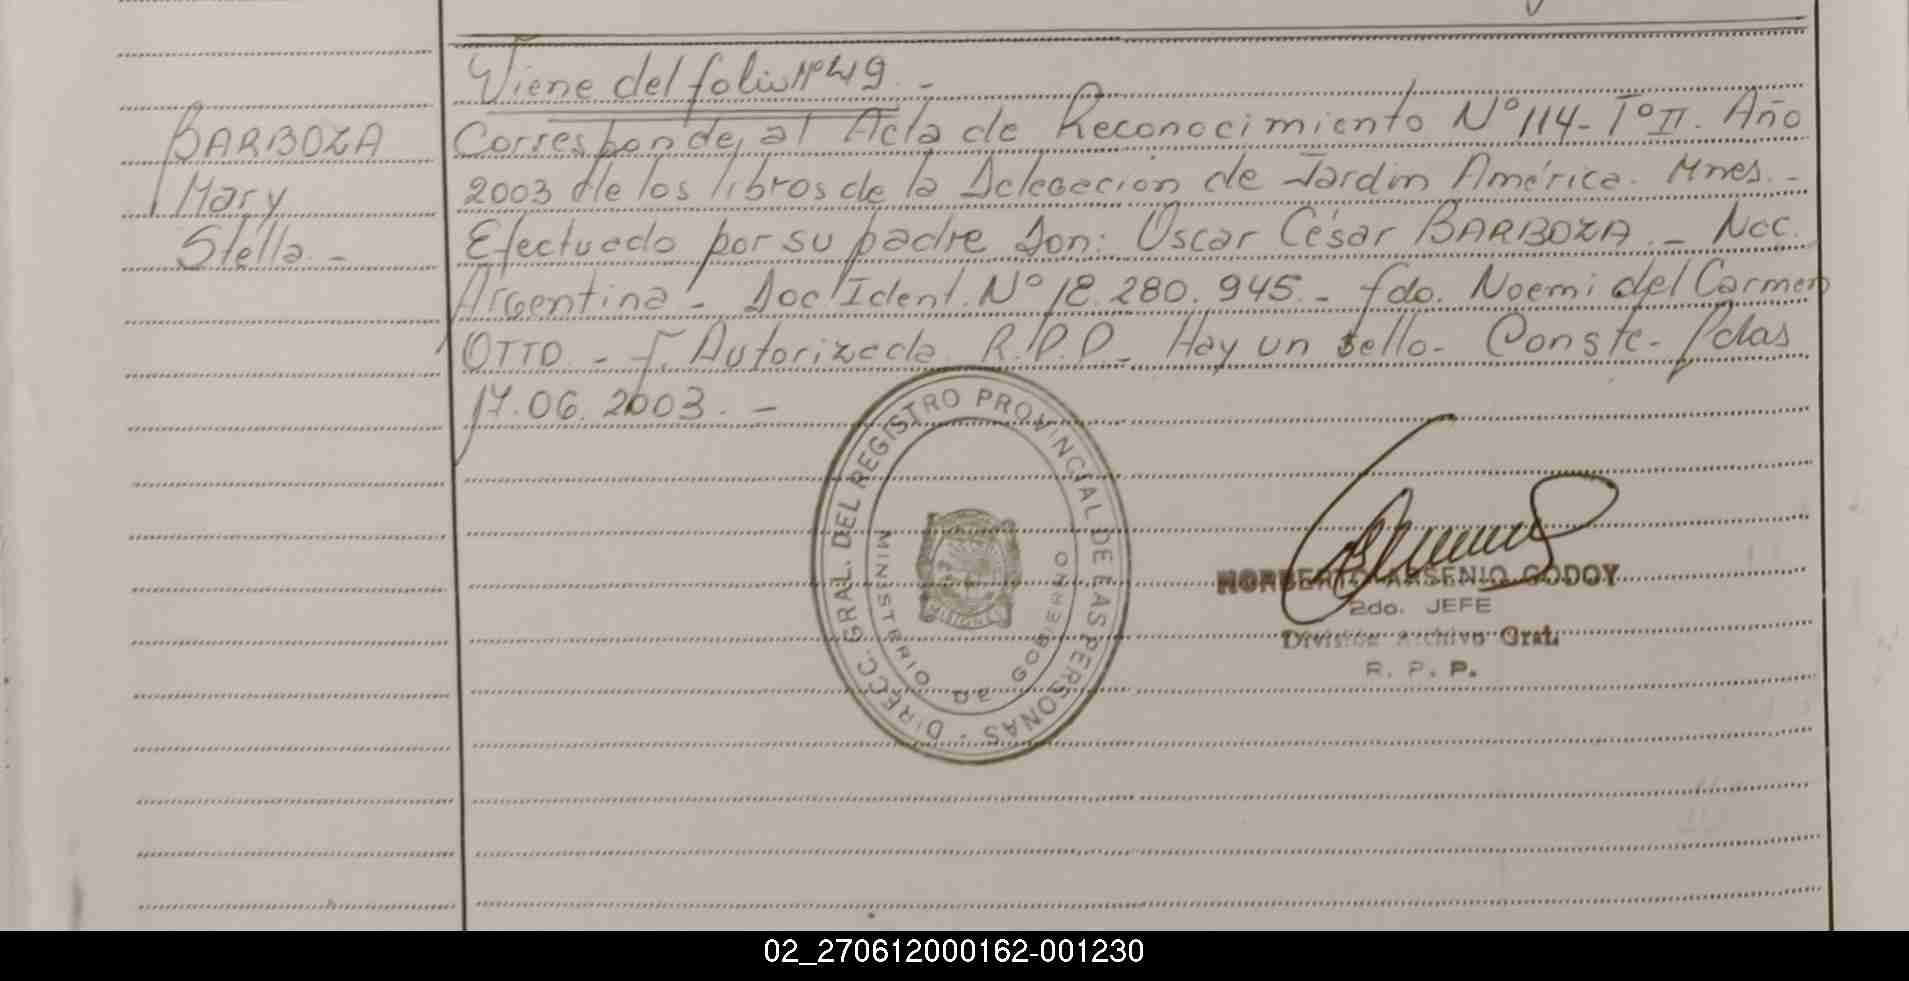 Viene del folio Nº 219. -
BARBOZA
Mary
Stella. -
Corresponde, al Acta de Reconocimiento Nº 114 - Tº II. Año
2003 de los libros de la Delegación de Jardin América. Mnes. -
Efectuado por su padre Don: Oscar César BARBOZA. - Nac.
Argentina - Doc Ident. Nº 18.280.945. - fdo. Noemi del Carmen
OTTO. - F. Autorizada R.P.P. - Hay un sello - Conste - Pdas
17.06.2003. -
DIRECC. GRAL. DEL REGISTRO PROVINCIAL DE LAS PERSONAS -
MINISTERIO DE GOBIERNO
MISIONES
NORBERTO ARSENIO GODOY
2do. JEFE
División Archivo Gral.
R. P. P.
02_270612000162-001230